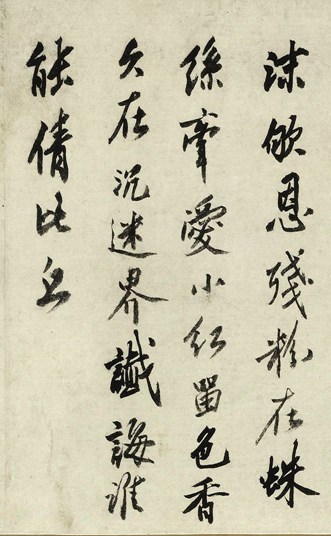 沫欱恩殘粉在蛛
絲牽愛小紅留色香
久在沉迷界懺悔誰
能倩比丘